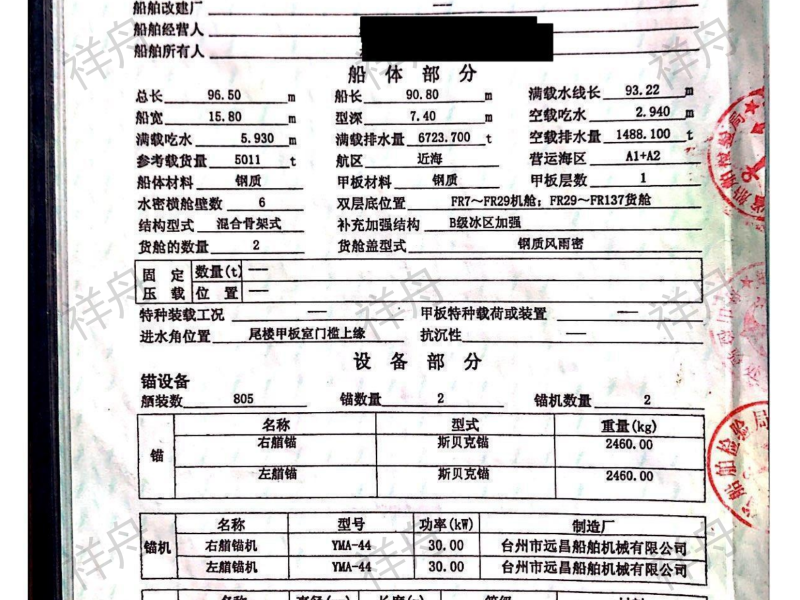 船舶改建厂 —
船舶经营人
船舶所有人
船体部分
总长 96.50 m 船长 90.80 m 满载水线长 93.22 m
船宽 15.80 m 型深 7.40 m 空载吃水 2.940 m
满载吃水 5.930 m 满载排水量 6723.700 t 空载排水量 1488.100 t
参考载货量 5011 t 航区 近海 营运海区 A1+A2
船体材料 钢质 甲板材料 钢质 甲板层数 1
水密横舱壁数 6 双层底位置 FR7～FR29机舱；FR29～FR137货舱
结构型式 混合骨架式 补充加强结构 B级冰区加强
货舱的数量 2 货舱盖型式 钢质风雨密
固定 数量(t) —
压载 位置 —
特种装载工况 — 甲板特种载荷或装置 —
进水角位置 尾楼甲板室门槛上缘 抗沉性 —
设备部分
锚设备
舾装数 805 锚数量 2 锚机数量 2
名称 型式 重量(kg)
锚
右艏锚 斯贝克锚 2460.00
左艏锚 斯贝克锚 2460.00
名称 型号 功率(kW) 制造厂
锚机 右艏锚机 YMA-44 30.00 台州市远昌船舶机械有限公司
左艏锚机 YMA-44 30.00 台州市远昌船舶机械有限公司
祥舟
祥舟
祥舟
祥舟
祥舟
祥舟
祥舟
祥舟
祥舟